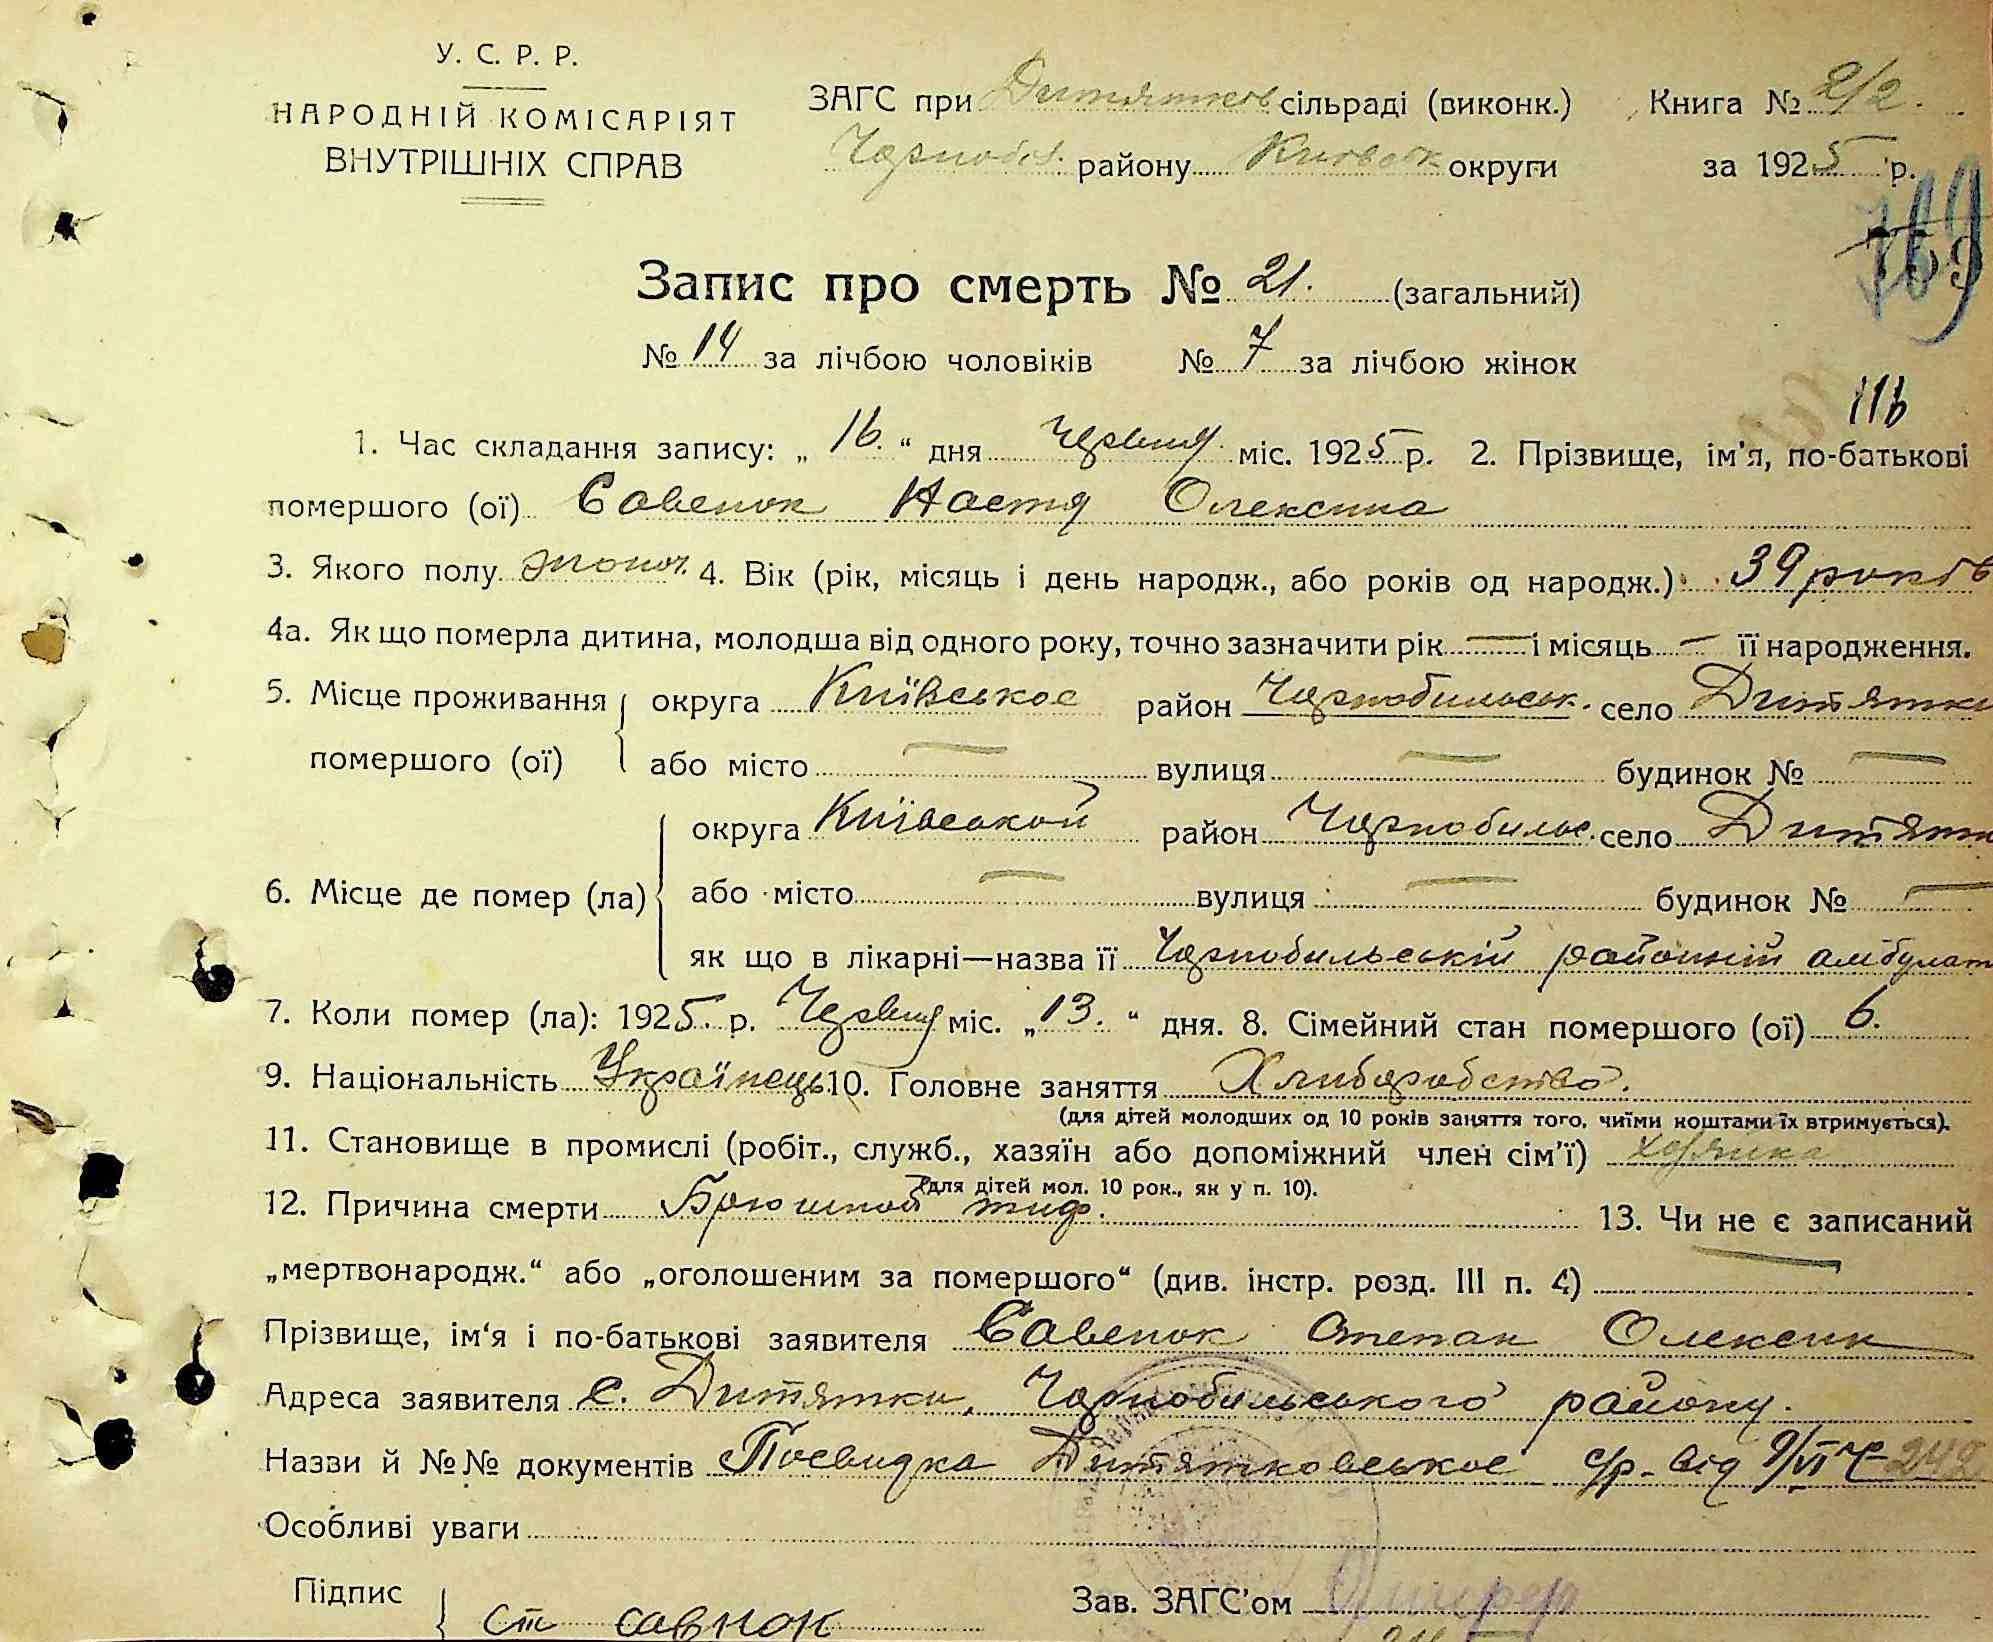 У. С. Р. Р.
НАРОДНІЙ КОМІСАРІЯТ
ВНУТРІШНІХ СПРАВ
ЗАГС при Дитятков сільраді (виконк.) Книга № 2/2.
Чорноб. району Київськ округи за 1925 р.
769
Запис про смерть № 21. (загальний)
№ 14 за лічбою чоловіків № 7 за лічбою жінок
116
1. Час складання запису: „ 16. “ дня Червня міс. 1925 р. 2. Прізвище, ім'я, по-батькові
помершого (ої) Савенок Настя Олексина
3. Якого полу жіноч. 4. Вік (рік, місяць і день народж., або років од народж.) 39 років
4а. Як що померла дитина, молодша від одного року, точно зазначити рік — і місяць — її народження.
5. Місце проживання округа Київськоє район Чорнобильськ. село Дитятки
помершого (ої) або місто — вулиця — будинок № —
округа Київськой район Чорнобильс. село Дитятк
6. Місце де помер (ла) або місто — вулиця — будинок № —
як що в лікарні—назва її Чорнобильській районній амбулат
7. Коли помер (ла): 1925. р. Червня міс. „ 13. “ дня. 8. Сімейний стан помершого (ої) 6.
9. Національність Українець 10. Головне заняття Хлиборобство.
(для дітей молодших од 10 років заняття того, чиїми коштами їх втримується).
11. Становище в промислі (робіт., служб., хазяїн або допоміжний член сім'ї) хозяйка
(для дітей мол. 10 рок., як у п. 10).
12. Причина смерти Брюшной тиф. 13. Чи не є записаний
„мертвонародж.“ або „оголошеним за помершого“ (див. інстр. розд. III п. 4) —
Прізвище, ім‘я і по-батькові заявителя Савенок Степан Олексин
Адреса заявителя С. Дитятки, Чорнобильського району.
Назви й №№ документів Посвидка Дитятковськоє с/р. від 9/VI Ч 249
Особливі уваги
Підпис Ст савнок
Зав. ЗАГС'ом